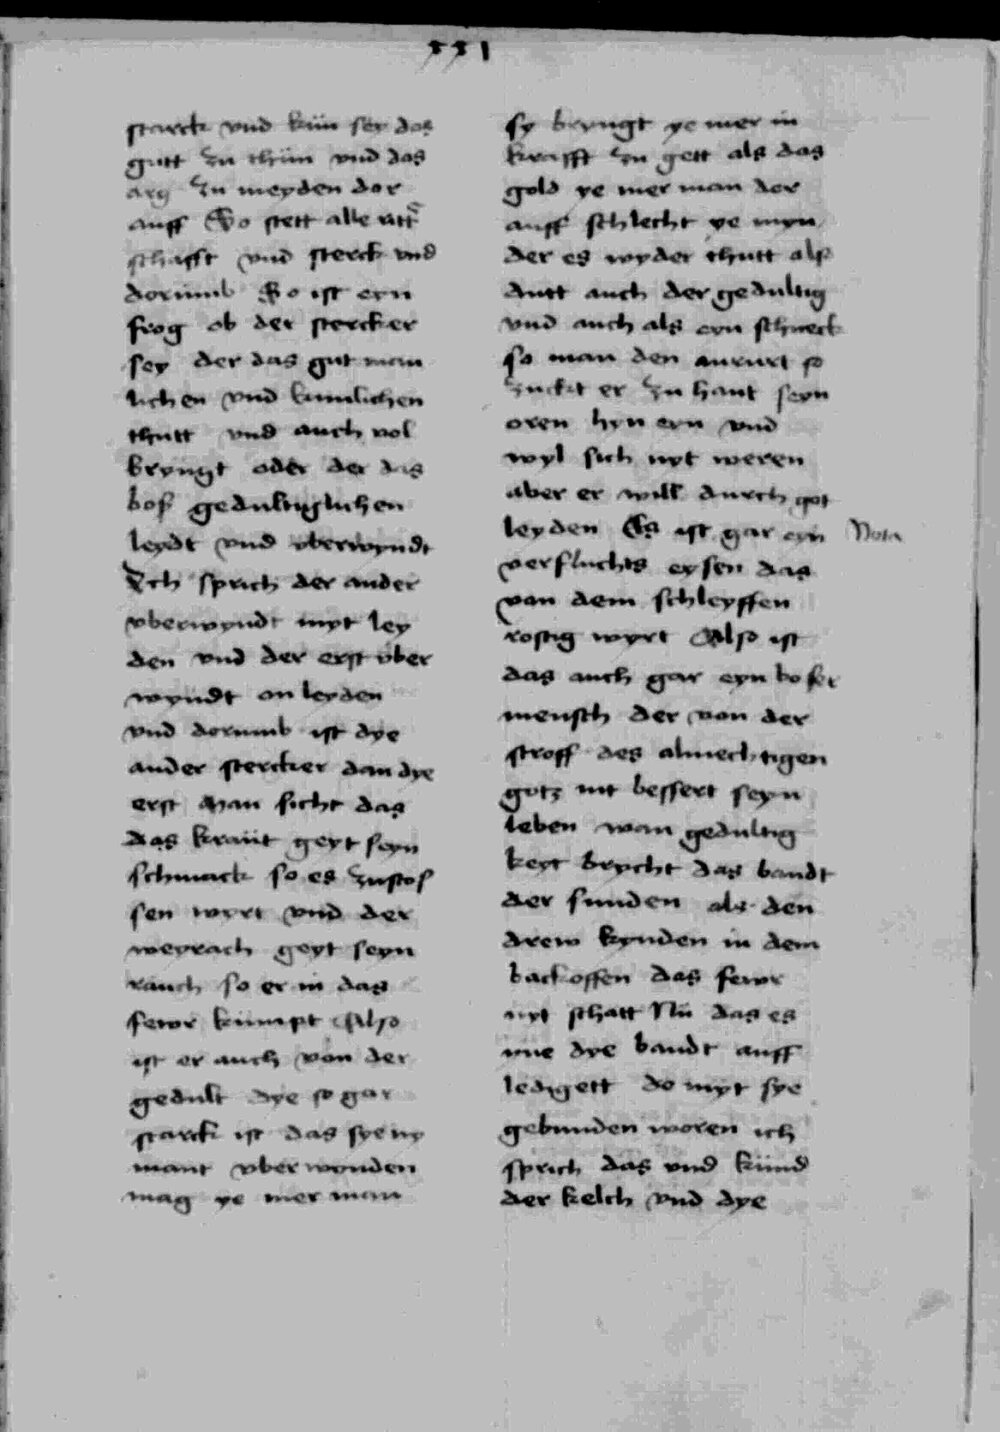 331
starck vnd kün sey das
gutt zu thün vnd das
arg zu meyden dor
auff So stett alle ritt
schafft vnd sterck vnd
dorümb So ist eyn
frog ob der stercker
sey der das gut man
lichen vnd kunlichen
thutt vnd auch vol
bryngt oder der das
boß gedultiglichen
leydt vnd vberwyndt
Ich sprich der ander
vberwyndt myt ley
den vnd der erst vber
wyndt on leyden
vnd dorumb ist dye
ander stercker dan dye
erst Man sicht das
das kraüt geyt seyn
schmack so es zustos
sen wyrt vnd der
weyrach geyt seyn
rauch so er in das
fewr kümpt Also
ist er auch von der
gedult dye so gar
starck ist das sye ny
mant vber wonden
mag ye mer man
sy bryngt ye mer in
krafft zu gett als das
gold ye mer man dor
auff schlecht ye myn
der es wyder thutt als
dutt auch der gedultig
vnd auch als eyn schneck
so man den anrurt so
zuckt er zu hant seyn
oren hyn eyn vnd
wyl sich nyt weren
aber er will durch got
leyden Es ist gar eyn
Nota
verfluchts eysen das
von dem schleyffen
rostig wyrt Also ist
das auch gar eyn boser
mensch der von der
stroff des almechtigen
gotz nit bessert seyn
leben wan gedultig
keyt brycht das bandt
der sunden als den
drew kynden in dem
backoffen das fewr
nyt schatt Nü das es
yne dye bandt auff
ledigett do myt sye
gebunden woren ich
sprich das vnd künd
der kelch vnd dye